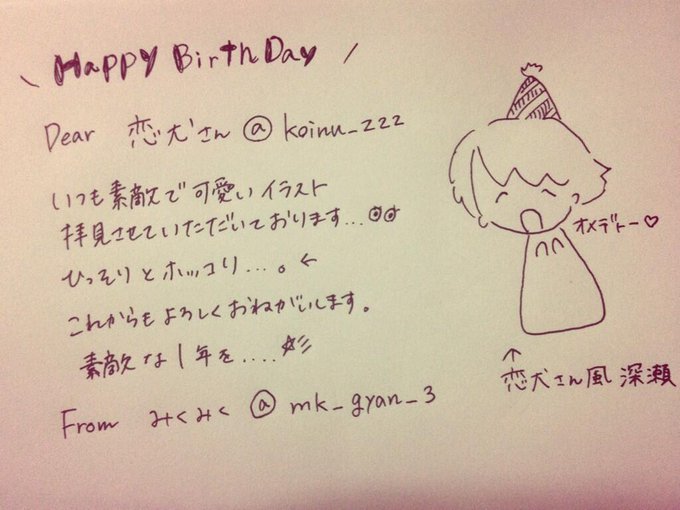 \ Happy BirthDay /
Dear 恋犬さん @ koinu_zzz
いつも素敵で可愛いイラスト
拝見させていただいております...◎◎
ひっそりとホッコリ...。←
これからもよろしくおねがいします。
素敵な1年を....☆彡
From みくみく @ mk_gyan_3
オメデトー♡
↑
恋犬さん風 深瀬